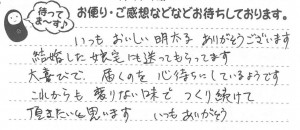 待ってま〜す♪
お便り・ご感想などなどお待ちしております。
いつも おいしい 明太子 ありがそうございます
結婚した娘宅にも送ってもらってます
大喜びで、届くのを 心待ちにしているようです
これからも 変りない味で つくり続けて
頂きたいと思います いつも ありがとう